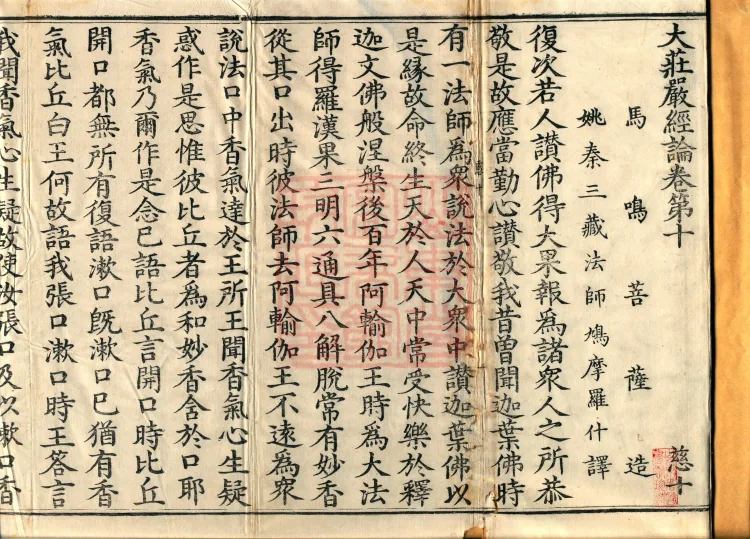 大莊嚴經論卷第十　慈十
馬鳴菩薩造
姚秦三藏法師鳩摩羅什譯
復次若人讃佛得大果報爲諸衆人之所恭
敬是故應當勤心讃敬我昔曾聞迦葉佛時
有一法師爲衆說法於大衆中讃迦葉佛以
是緣故命終生天於人天中常受快樂於釋
迦文佛般涅槃後百年阿輸伽王時爲大法
師得羅漢果三明六通具八解脫常有妙香
從其口出時彼法師去阿輸伽王不遠爲衆
說法口中香氣達於王所王聞香氣心生疑
惑作是思惟彼比丘者爲和妙香含於口耶
香氣乃爾作是念已語比丘言開口時比丘
開口都無所有復語漱口旣漱口已猶有香
氣比丘白王何故語我張口漱口時王荅言
我聞香氣心生疑故使汝張口及以漱口香